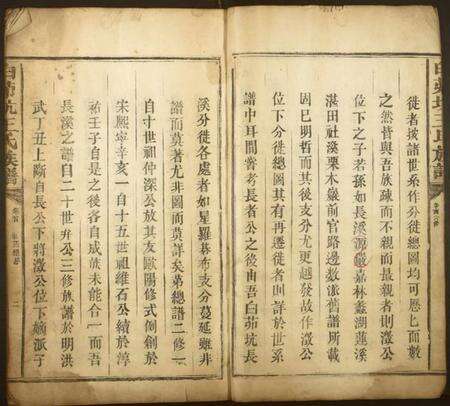 徙者披諸世系作分徙總圖均可歷匕而數
之然皆與吾族疎而不親而最親者則瀓公
位下之子若孫如長溪
嘉林
湖蓮溪
湛田社溪栗木巖前官路邊数派舊譜所載
固巳明晢而其後支分尤更越發故作瀓公
位下分徙總圖其有再遷徙者則詳於世系
譜中耳間嘗考長者公之後由吾白茆坑長
溪分徙各處者如星羅棊布支分蔓延難非
譜而莫著尤非圖而莫詳矣弟總譜二修一
自十世祖仲深公放其友歐陽修式例創於
宋熈寜辛亥一自十五世祖維石公續於淳
祐壬子自是之後各自成族未能合一而吾
長溪之譜自二十世弁公三修族譜於明洪
武丁丑上斷自長公下將瀓公位下嫡派于
白茆坑王氏族譜
白茆坑王氏族譜